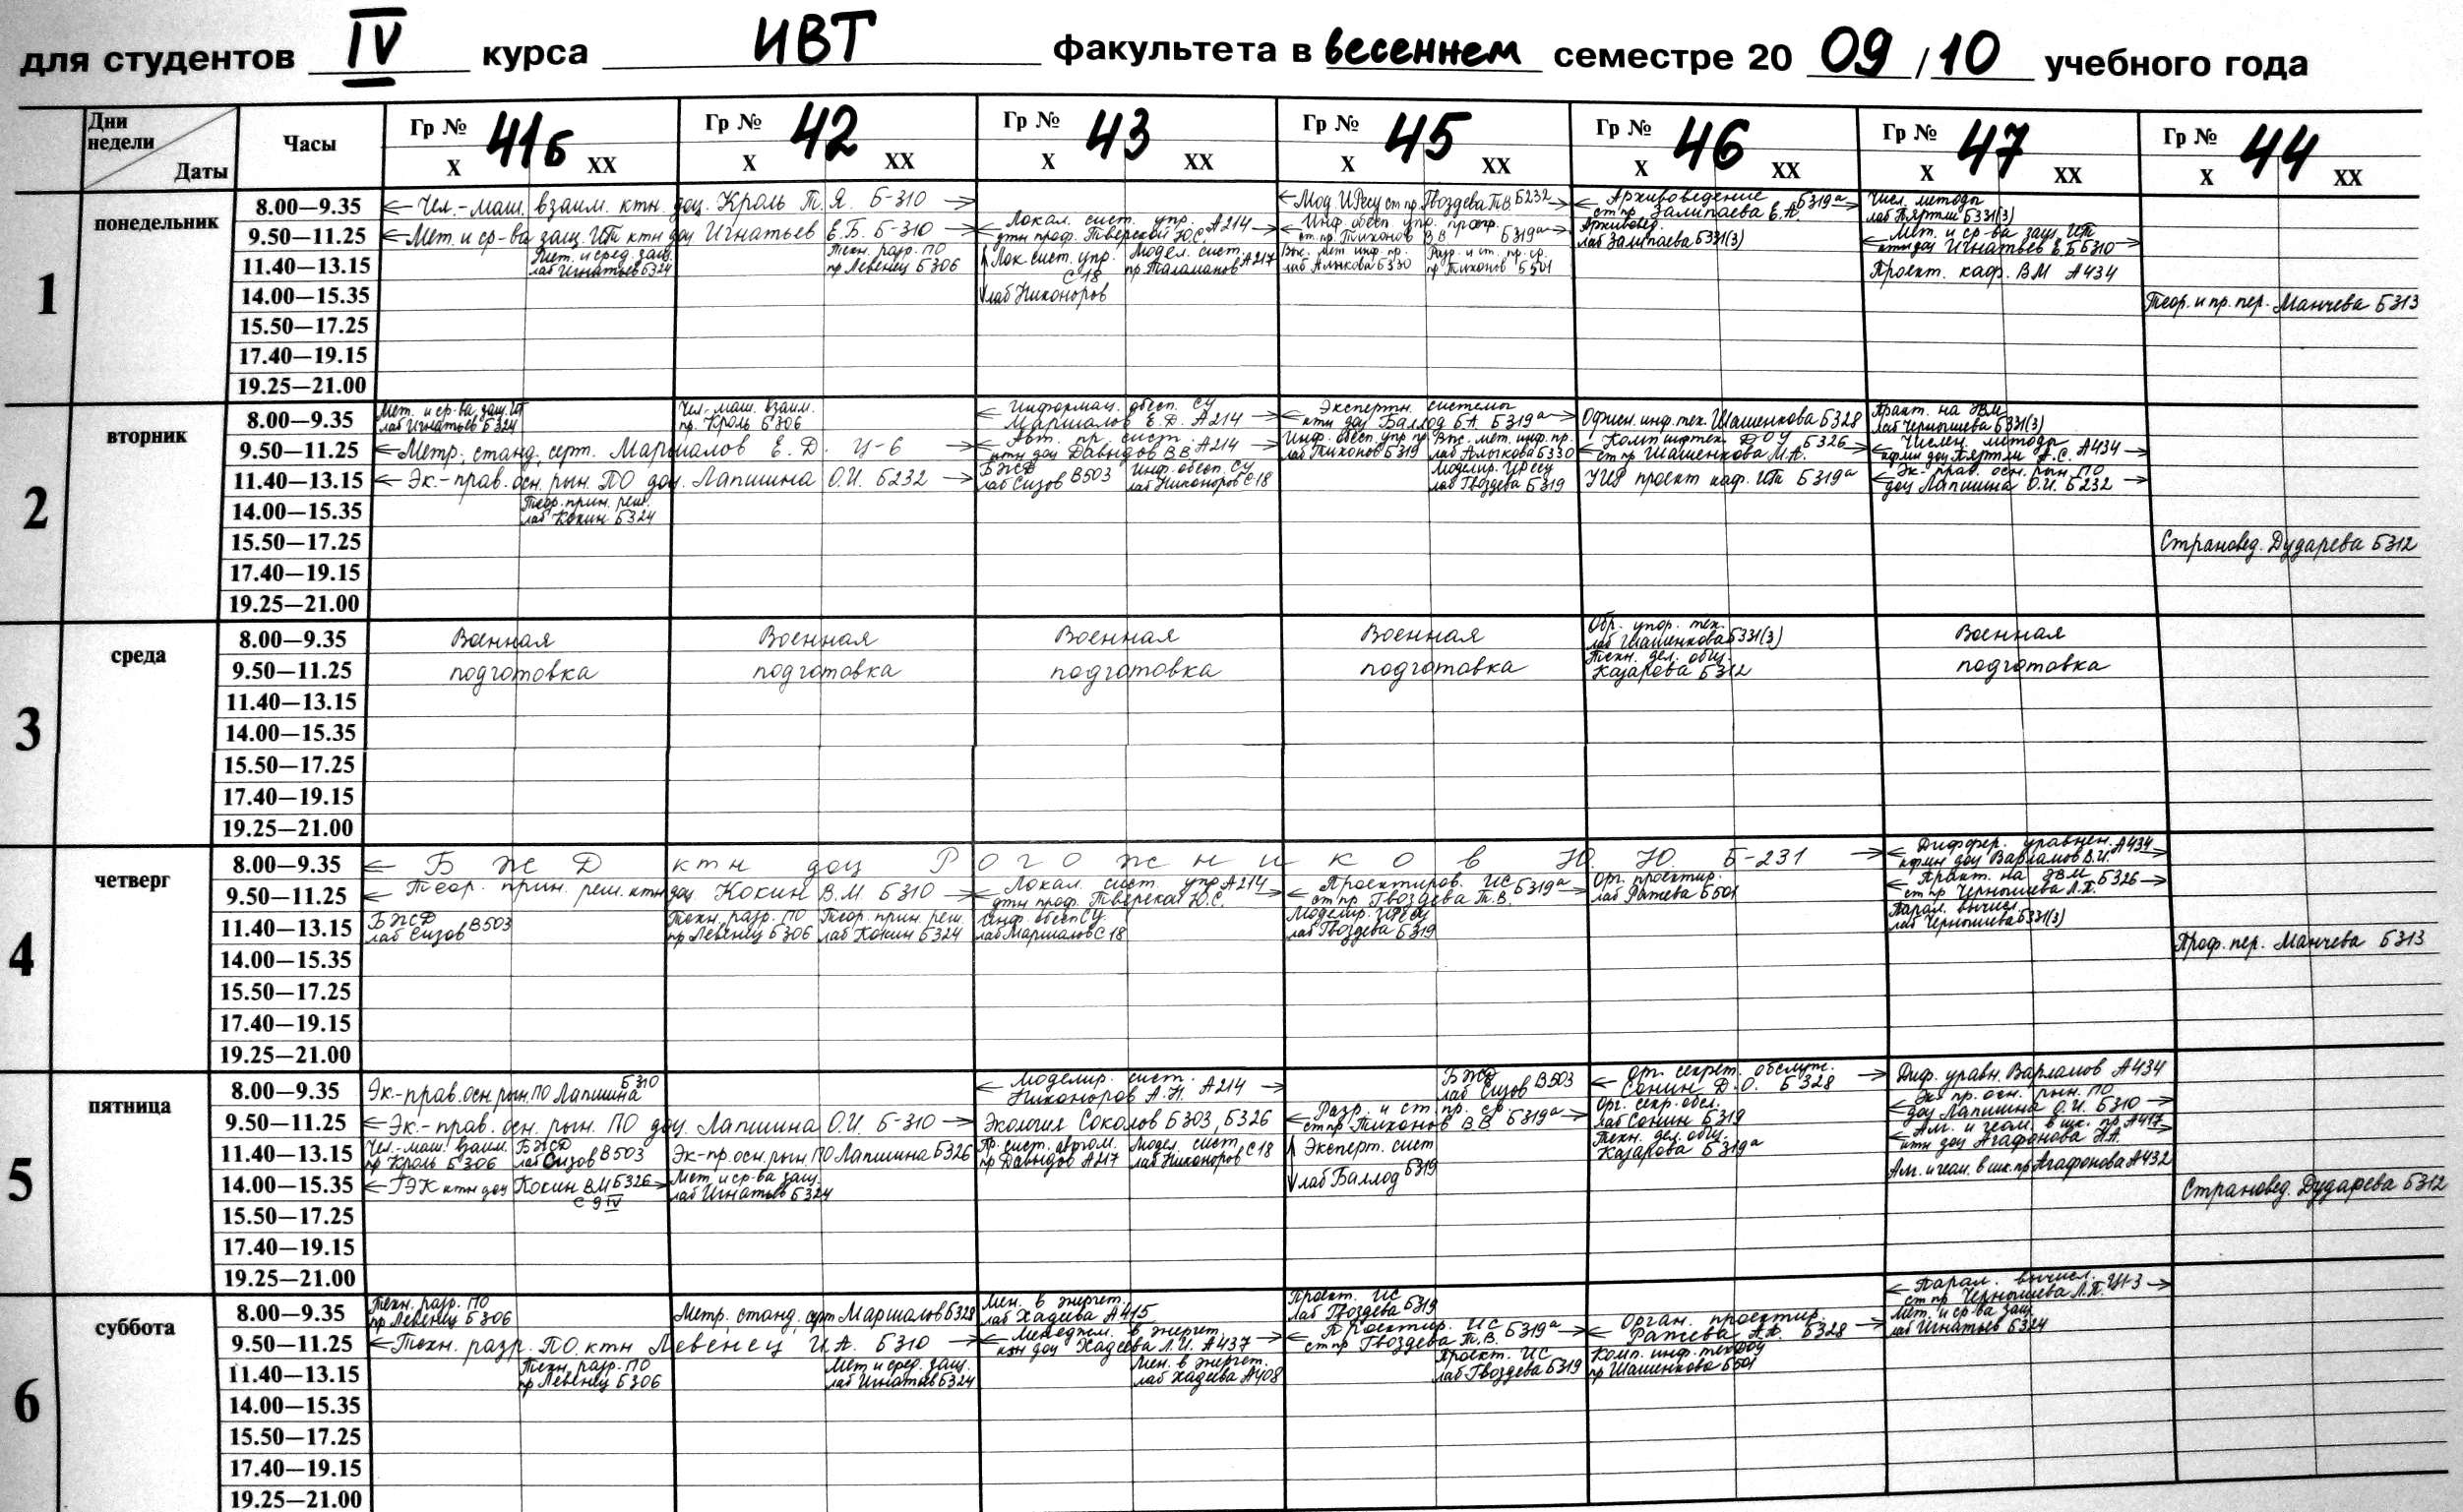 для студентов IV курса ИВТ факультета в весеннем семестре 20 09/10 учебного года
Дни недели Даты Часы Гр № 41б Гр № 42 Гр № 43 Гр № 45 Гр № 46 Гр № 47 Гр № 44
X XX X XX X XX X XX X XX X XX X XX
1 понедельник
8.00—9.35 ← Чел.-маш. взаим. ктн доц. Кроль Т.Я. Б-310 → ← Мод. ИРесу ст пр. Гвоздева Т.В Б232 → ← Архивоведение ст пр Залипаева Е.А. Б319а → Числ. методы лаб Пяртли Б331(3)
9.50—11.25 ← Мет. и ср-ва защ. ИТ ктн доц Игнатьев Е.Б. Б-310 → ← Локал. сист. упр. дтн проф. Тверской Ю.С. А214 → ← Инф. обесп. упр. прогр. ст. пр. Тихонов В.В. Б319а → Архивовед. лаб Залипаева Б331(3) ← Мет. и ср-ва защ. ИТ ктн доц Игнатьев Е.Б Б310 →
11.40—13.15 Мет. и сред. защ. лаб Игнатьев Б324 Техн. разр. ПО пр Левенец Б306 Лок. сист. упр. С18 Модел. сист. пр Таламанов А217 Выс. мет. инф. пр. лаб Алыкова Б330 Разр. и ст. пр. ср. пр Тихонов Б501 Проект. каф. ВМ А434
14.00—15.35 лаб Никоноров Теор. и пр. пер. Манчева Б313
15.50—17.25
17.40—19.15
19.25—21.00
2 вторник
8.00—9.35 Мет. и ср-ва защ. ИТ лаб Игнатьев Б324 Чел.-маш. взаим. пр. Кроль Б306 ← Информац. обесп. СУ Маршалов Е.Д. А214 → ← Экспертн. системы ктн доц Баллод Б.А. Б319а → Офисн. инф. тех. Шашенкова Б328 Практ. на ЭВМ лаб Чернышева Б331(3)
9.50—11.25 ← Метр., станд., серт. Маршалов Е.Д. Ц-6 → ← Авт. пр. сист. ктн доц Давыдов В В А214 → Инф. обесп. упр пр лаб Тихонов Б319 Выс. мет. инф. пр. лаб Алыкова Б330 ← Комп инф тех. ДОУ ст пр Шашенкова М.А. Б326 → ← Числен. методы кфмн доц Пяртли А.С. А434 →
11.40—13.15 ← Эк.-прав. осн. рын. ПО доц. Лапшина О.И. Б232 → БЖД лаб Сизов В503 Инф. обесп. СУ лаб Никоноров С18 Моделир. ИРесу лаб Гвоздева Б319 УИР проект каф. ИТ Б319а ← Эк. прав. осн. рын. ПО доц Лапшина О.И. Б232 →
14.00—15.35 Теор. прин. реш. лаб Кокин Б324
15.50—17.25 Страновед. Дударева Б312
17.40—19.15
19.25—21.00
3 среда
8.00—9.35 Военная Военная Военная Военная Обр. упор. тек. лаб Шашенкова Б331(3) Военная
9.50—11.25 подготовка подготовка подготовка подготовка Техн. дел. общ. Казарова Б312 подготовка
11.40—13.15
14.00—15.35
15.50—17.25
17.40—19.15
19.25—21.00
4 четверг
8.00—9.35 ← БЖД ктн доц Рогожников Ю.Ю. Б-231 → ← Диффер. уравнен. кфмн доц Варламов В.И. А434 →
9.50—11.25 ← Теор. прин. реш. ктн доц. Кокин В.М. Б310 → ← Локал. сист. упр дтн проф. Тверской Ю.С. А214 → ← Проектиров. ИС ст пр Гвоздева Т.В. Б319а → Орг. проектир. лаб Ратева Б501 ← Практ. на ЭВМ ст пр Чернышева Л.П. Б326 →
11.40—13.15 БЖД лаб Сизов В503 Техн. разр. ПО пр Левенец Б306 Теор. прин. реш. лаб Кокин Б324 Инф. обесп СУ. лаб Маршалов С18 Моделир. ИРесу лаб Гвоздева Б319 Парал. вычисл. лаб Чернышева Б331(3)
14.00—15.35 Проф. пер. Манчева Б313
15.50—17.25
17.40—19.15
19.25—21.00
5 пятница
8.00—9.35 Эк.-прав. осн. рын. ПО Лапшина Б310 ← Моделир. сист. Никоноров А.Н. А214 → БЖД лаб Сизов В503 ← Орг. секрет. обслуж. Сонин Д.О. Б328 → Диф. уравн. Варламов А434
9.50—11.25 ← Эк.-прав. осн. рын. ПО доц. Лапшина О.И. Б-310 → Экология Соколов Б303, Б326 ← Разр. и ст. пр. ср ст пр Тихонов В В Б319а → Орг. секр. обсл. лаб Сонин Б319 ← Эк. пр. осн. рын. ПО доц Лапшина О.И. Б310 →
11.40—13.15 Чел.-маш. взаим. пр Кроль Б306 БЖД лаб Сизов В503 Эк-пр. осн. рын. ПО Лапшина Б326 Пр. сист. автом. пр Давыдов А217 Модел. сист. лаб Никоноров С18 Эксперт. сист Техн. дел. общ. Казарова Б319а ← Алг. и геом. в шк. пр ктн доц Агафонова Н.А. А417 →
14.00—15.35 ← ГЭК ктн доц Кокин ВМ Б326 → с 9 IV Мет. и ср-ва защ. лаб Игнатьев Б324 лаб Баллод Б319 Алг. и геом. в шк. пр Агафонова А432 Страновед. Дударева Б312
15.50—17.25
17.40—19.15
19.25—21.00
6 суббота
8.00—9.35 Техн. разр. ПО пр Левенец Б306 Метр., станд., серт Маршалов Б328 Мен. в энергет. лаб Хадеева А415 Проект. ИС лаб Гвоздева Б319 ← Парал. вычисл. ст пр Чернышева Л.П. →
9.50—11.25 ← Техн. разр. ПО. ктн Левенец И.А. Б310 → ← Менеджм. в энергет. кэн доц Хадеева Л.И. А437 → ← Проектир. ИС ст пр Гвоздева Т.В. Б319а → ← Орган. проектир. Ратева Б328 → Мет. и ср-ва защ лаб Игнатьев Б324
11.40—13.15 Техн. разр. ПО пр Левенец Б306 Мет и сред. защ. лаб Игнатьев Б324 Мен. в энергет. лаб Хадеева А408 Проект. ИС лаб Гвоздева Б319 Комп. инф. тех ДОУ пр Шашенкова Б501
14.00—15.35
15.50—17.25
17.40—19.15
19.25—21.00